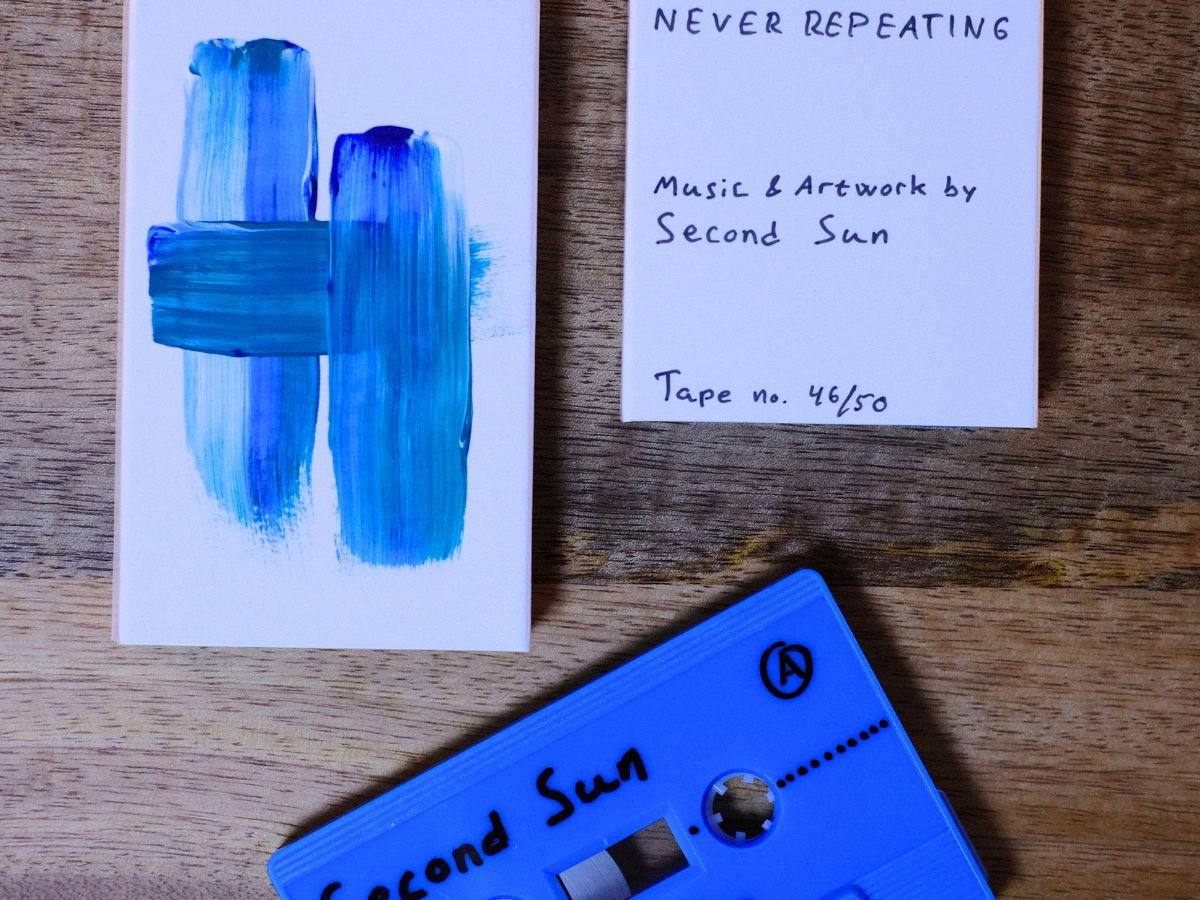 NEVER REPEATING
Music & Artwork by
Second Sun
Tape no. 46/50
A
Second Sun